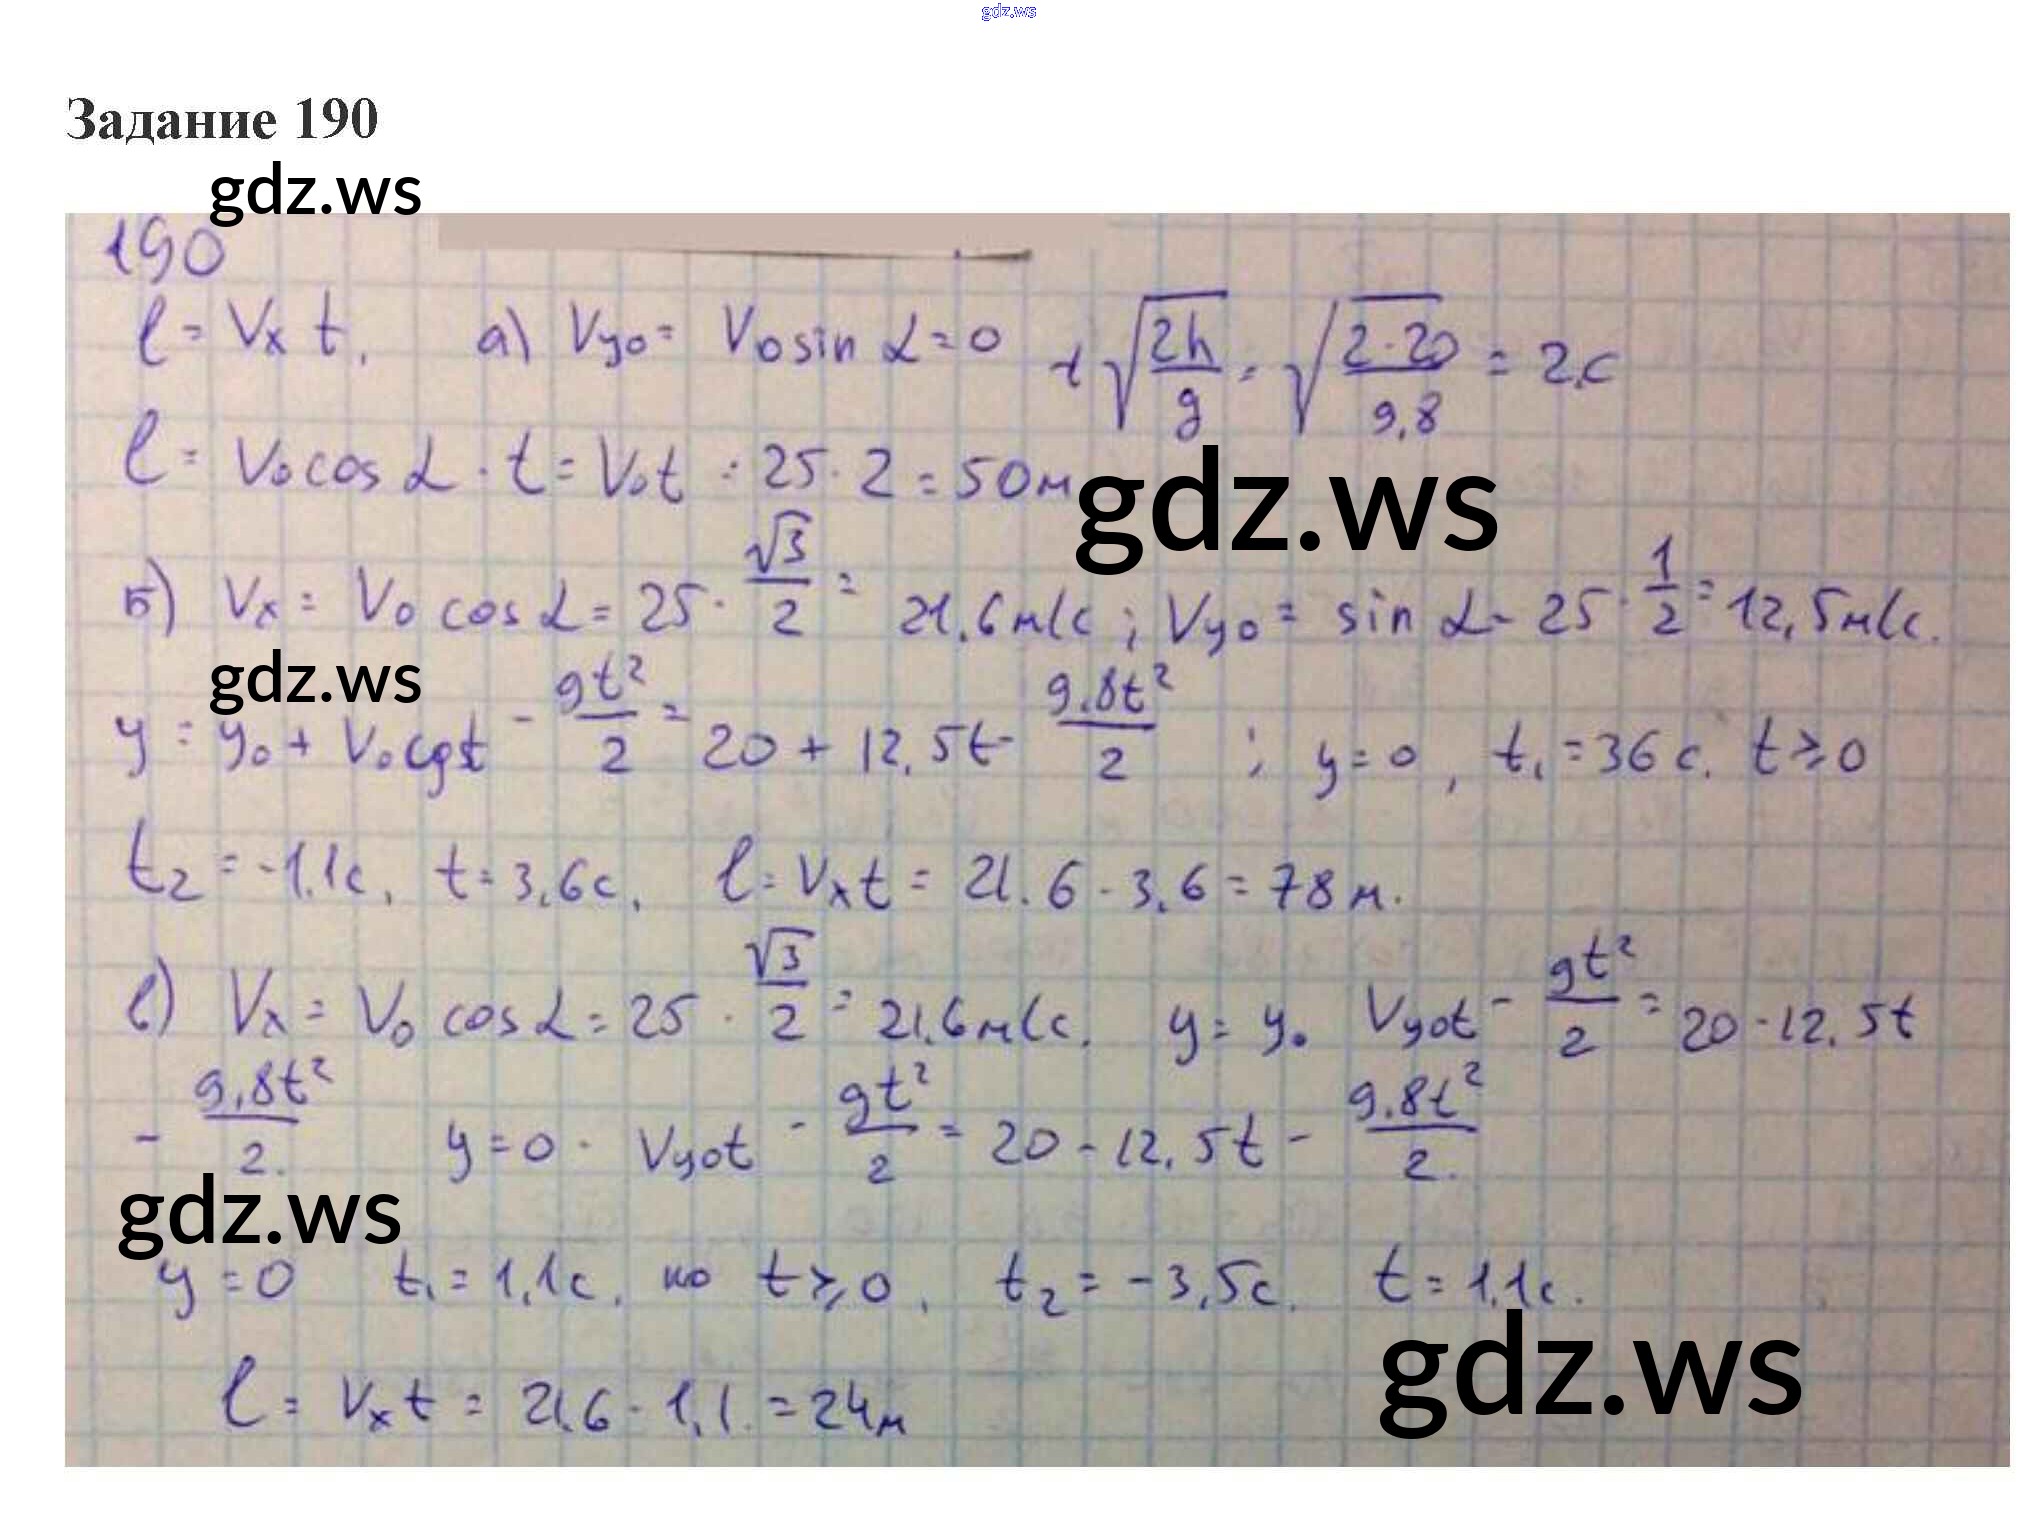 gdz.ws
Задание 190
gdz.ws
190
l = Vx t, а) Vyo = Vo sin α = 0 t √(2h/g) = √(2·20/9,8) = 2.с
l = Vo cos α · t = Vot = 25 · 2 = 50м
gdz.ws
Б) Vx = Vo cos α = 25 · √3/2 = 21,6 м/с ; Vyo = sin α - 25 · 1/2 = 12,5 м/с.
gdz.ws
y = yo + Vo t - gt²/2 = 20 + 12,5t - 9.8t²/2 ; y = 0, t₁ = 36 с. t ≥ 0
t₂ = -1.1с, t = 3,6с, l = Vxt = 21.6 · 3,6 = 78 м.
в) Vx = Vo cos α = 25 · √3/2 = 21,6 м/с. y = yo Vyot - gt²/2 = 20 - 12,5t
- 9,8t²/2. y = 0 - Vyot - gt²/2 = 20 - 12,5t - 9.8t²/2.
gdz.ws
y = 0 t₁ = 1,1с, но t ≥ 0, t₂ = -3,5с. t = 1.1с.
gdz.ws
l = Vxt = 21.6 · 1,1. = 24м